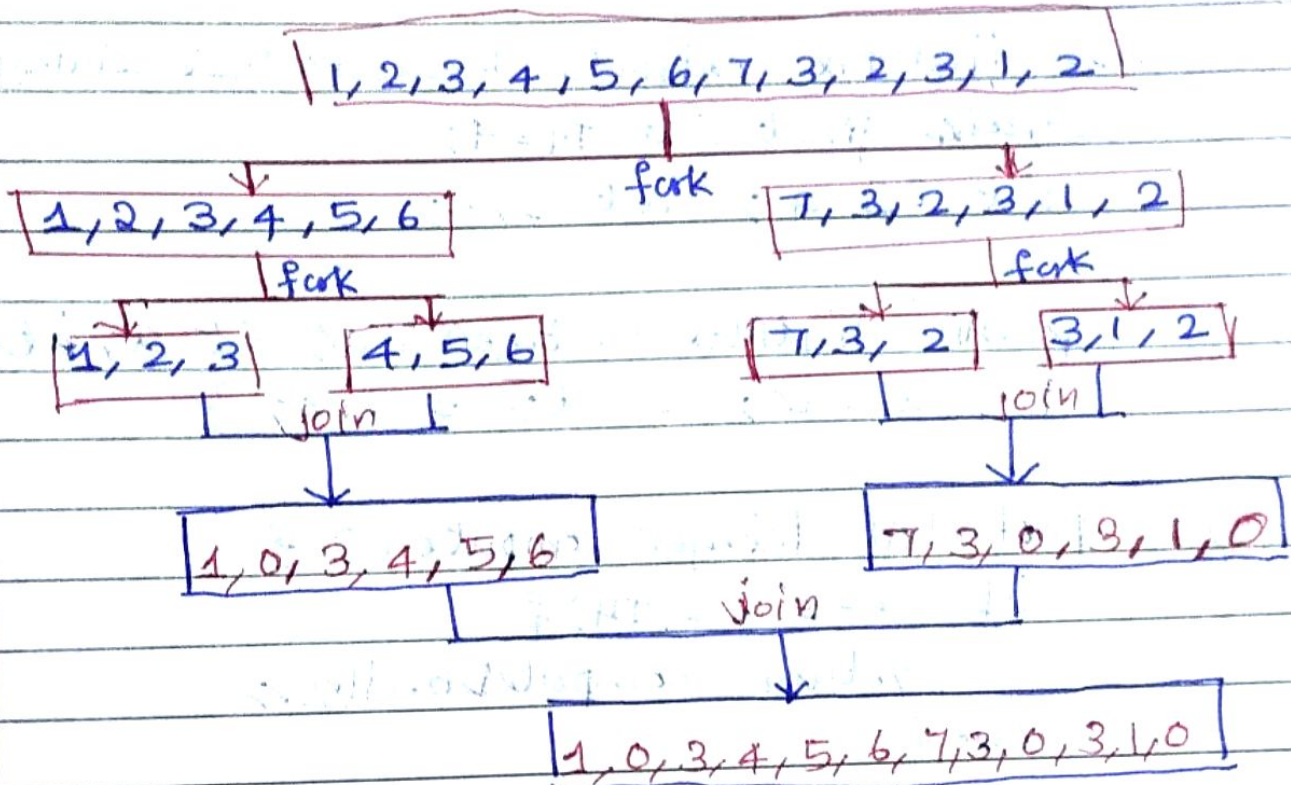 1, 2, 3, 4, 5, 6, 7, 3, 2, 3, 1, 2
fork
1, 2, 3, 4, 5, 6
7, 3, 2, 3, 1, 2
fork
fork
1, 2, 3
4, 5, 6
7, 3, 2
3, 1, 2
join
join
1, 0, 3, 4, 5, 6
7, 3, 0, 3, 1, 0
join
1, 0, 3, 4, 5, 6, 7, 3, 0, 3, 1, 0